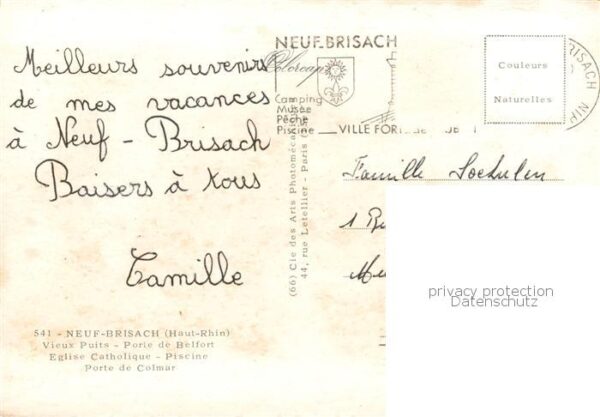 Meilleurs souvenirs
de mes vacances
à Neuf-Brisach
Baisers à tous
Camille
541 - NEUF-BRISACH (Haut-Rhin)
Vieux Puits - Porte de Belfort
Eglise Catholique - Piscine
Porte de Colmar
(66) Cie des Arts Photomécaniques
44, rue Letellier - Paris
NEUF-BRISACH
Camping
Musée
Pêche
Piscine
VILLE FOR
Couleurs
Naturelles
BRISACH
Famille
1
privacy protection
Datenschutz